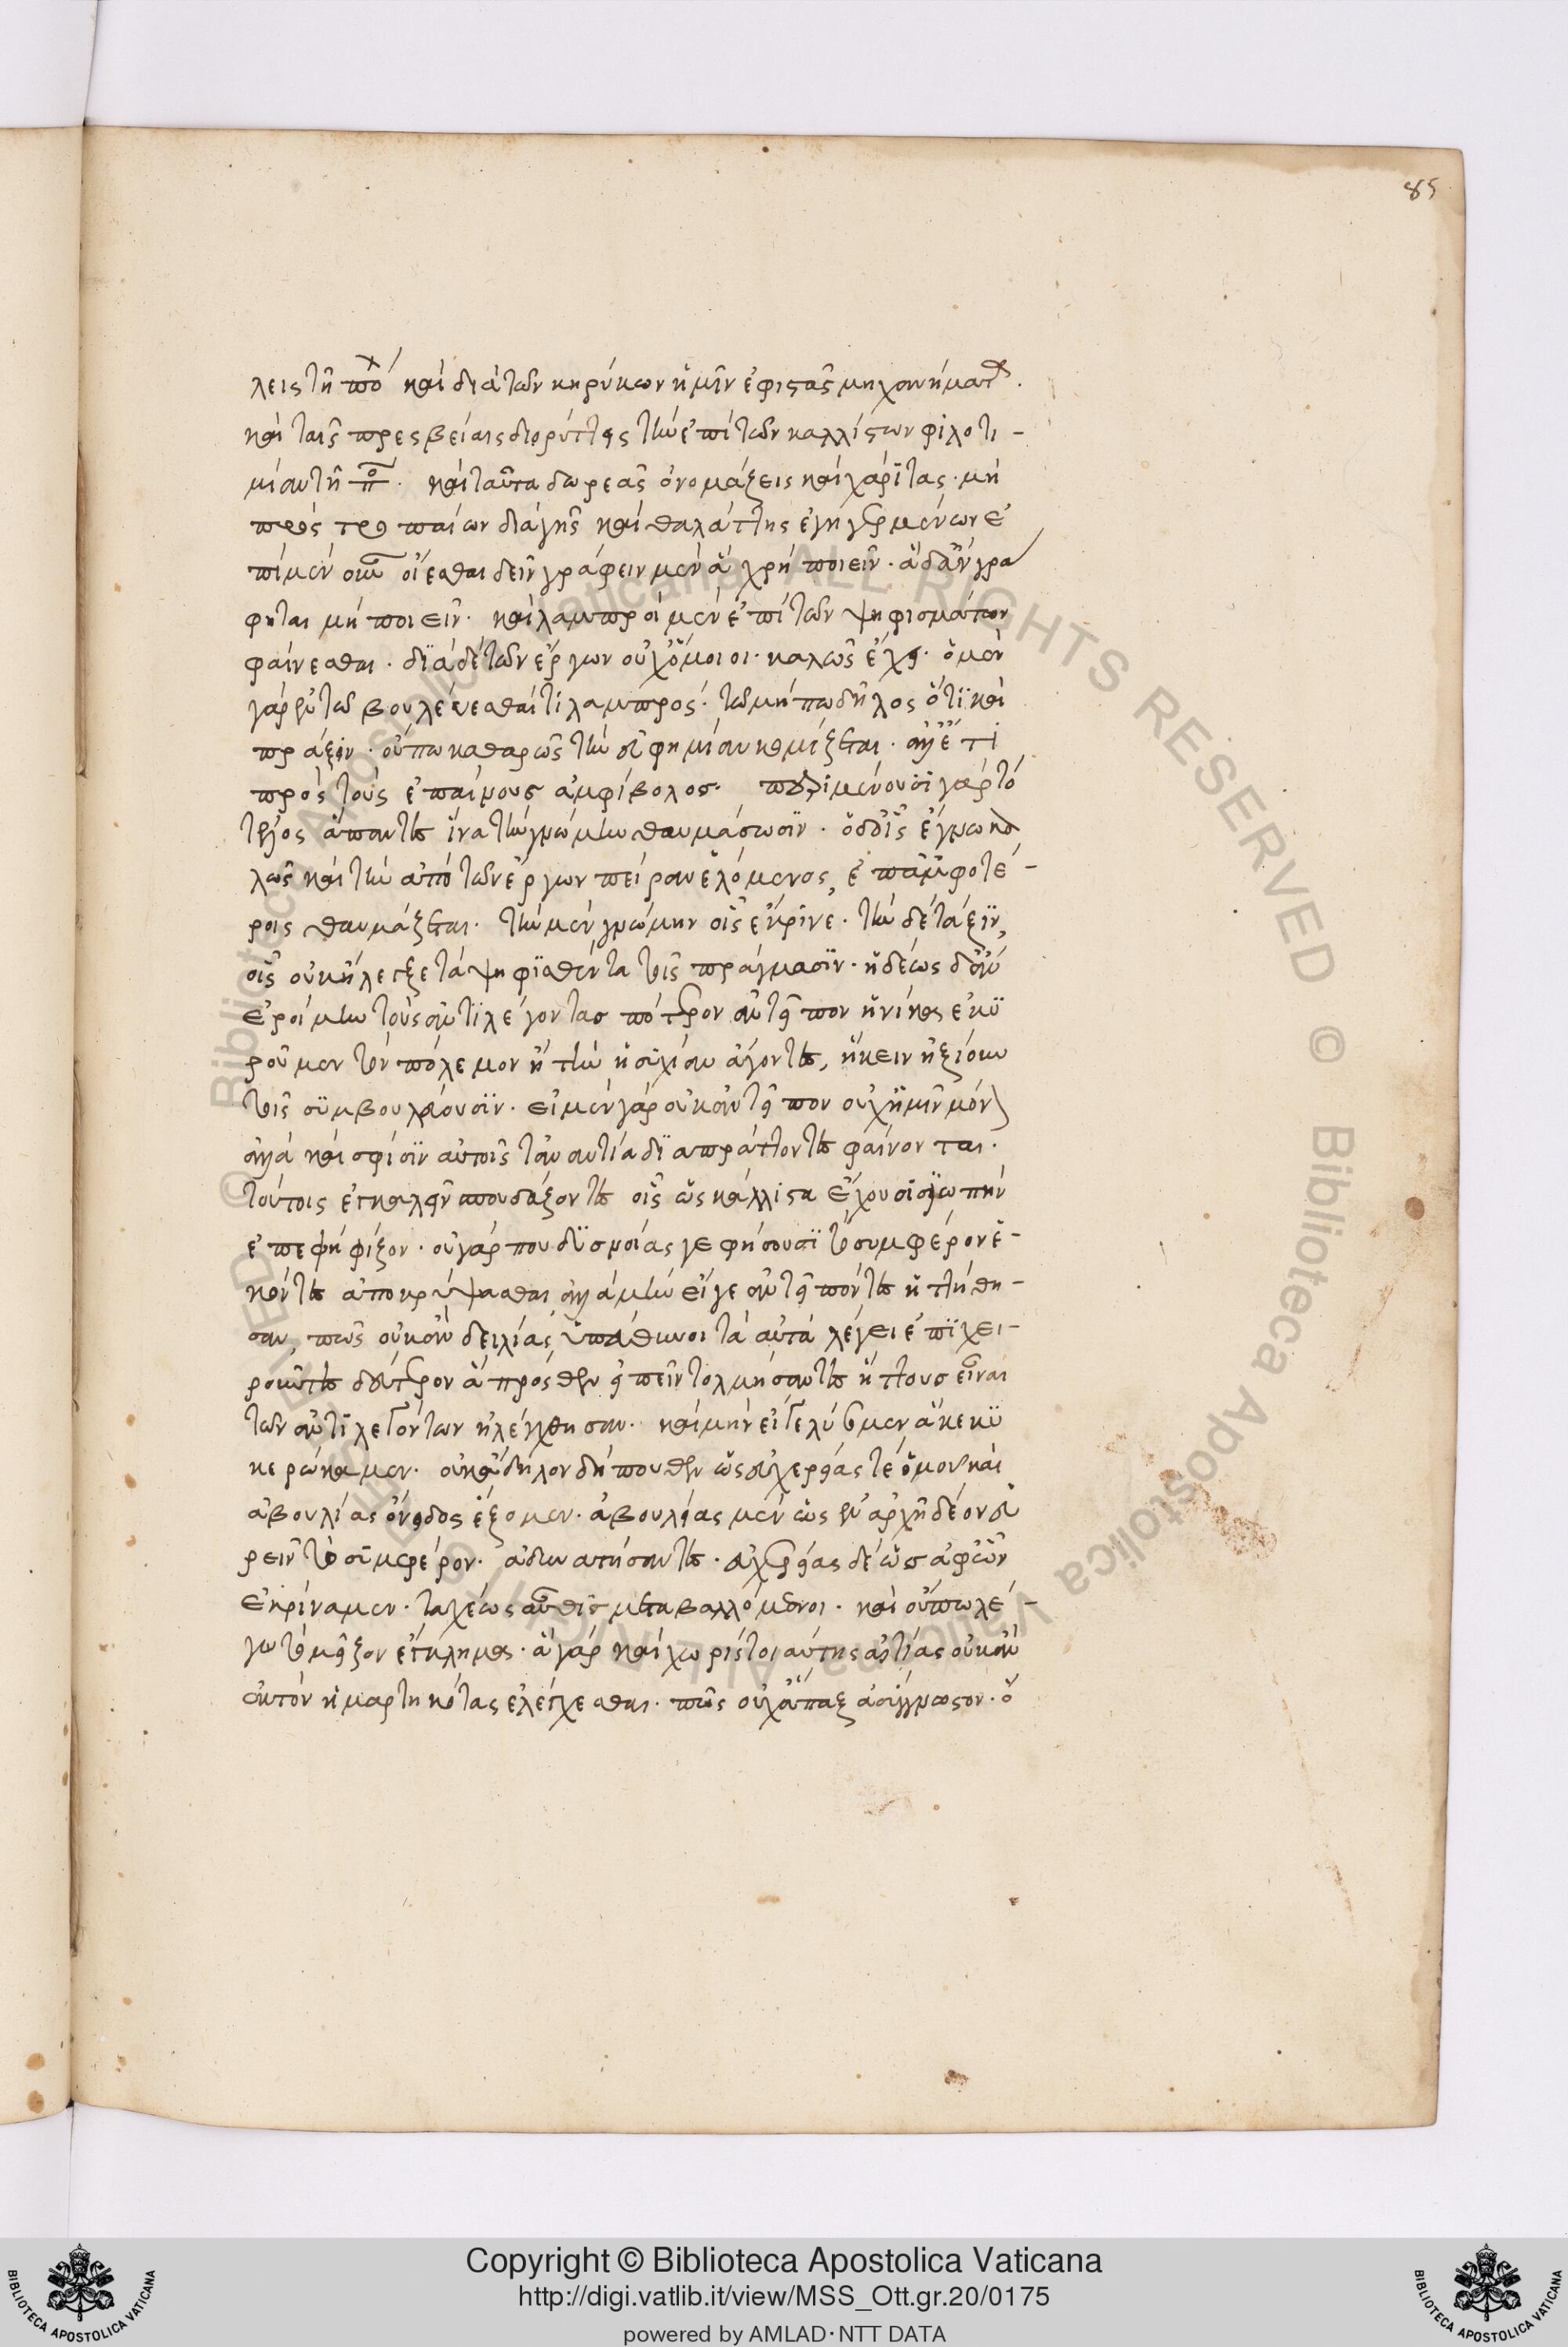 85
λεις τῇ π καὶ διὰ τῶν κηρύκων ἡμῖν ἐφιστᾷς μηχανήματα.
καὶ ταῖς πρεσβείαις διορύττεις τὴν ἐπὶ τῶν καλλίστων φιλοτι-
μίαν τῇ π. καὶ ταῦτα δωρεὰς ὀνομάζεις καὶ χάριτας. μὴ
πρὸς τροπαίων διὰ γῆς καὶ θαλάττης ἐγηγερμένων ἐ
πὶ μὲν οὖν οἴεσθαι δεῖν γράφειν μὲν ἃ χρὴ ποιεῖν. ἃ δ' ἂν γρα
φηται μὴ ποιεῖν. καὶ λαμπροὶ μὲν ἐπὶ τῶν ψηφισμάτων
φαίνεσθαι. διὰ δὲ τῶν ἔργων οὐχ ὅμοιοι. καλῶς ἔχει. ὁ μὲν
γὰρ ἐν τῷ βουλεύεσθαί τι λαμπρός. τῷ μήπω δῆλος ὅτι καὶ
πράξει. οὔπω καθαρῶς τὴν εὐφημίαν κομίζεται. ἀλλ' ἔτι
πρὸς τοὺς ἐπαίνους ἀμφίβολος. περιμένουσι γὰρ τὸ
τέλος ἅπαντες ἵνα τὴν γνώμην θαυμάσωσιν. ὁ δ' οἷς ἔγνω κα
λῶς καὶ τὴν ἀπὸ τῶν ἔργων πεῖραν ἑλόμενος, ἐπ' ἀμφοτέ-
ροις θαυμάζεται. τὴν μὲν γνώμην οἷς ἔκρινε. τὴν δὲ τάξιν,
οἷς οὐκ ἤλεγξε τὰ ψηφισθέντα τοῖς πράγμασιν. ἡδέως δ' ἂν
ἐροίμην τοὺς ἀντιλέγοντας πότερον ἀντεῖπον ἡνίκα ἐκυ
ροῦμεν τὸν πόλεμον ἢ τὴν ἡσυχίαν ἄγοντες, ἥκειν ἠξίουν
τοῖς συμβουλεύουσιν. εἰ μὲν γὰρ οὐκ ἀντεῖπον οὐχ ἡμῖν μόνον
ἀλλὰ καὶ σφίσιν αὐτοῖς τἀναντία διαπράττοντες φαίνονται.
τούτοις ἐγκαλεῖν σπουδάζοντες οἷς ὡς κάλλιστα ἔχουσι σιωπὴν
ἐπεψήφιζον. οὐ γὰρ που δυσμενείας γε φήσουσι τὸ συμφέρον ἑ-
κόντες ἀποκρύψασθαι ἀλλὰ μὴν εἴγε ἀντειπόντες ἡττήθη-
σαν, πῶς οὐκ ἂν δειλίας ὑπεύθυνοι τὰ αὐτὰ λέγειν ἐπιχει-
ροῦντες δεύτερον ἃ πρόσθεν εἰπεῖν τολμήσαντες ἥττους εἶναι
τῶν ἀντιλεγόντων ἠλέγχθησαν. καὶ μὴν εἴ γε λύσομεν ἃ κεκυ
κερώκαμεν. οὐκ ἄδηλον δήπουθεν ὡς εὐχερείας τε ὁμοῦ καὶ
ἀβουλίας ὄνειδος ἕξομεν. ἀβουλίας μὲν ὡς ἐν ἀρχῇ δέον εὑ
ρεῖν τὸ συμφέρον. ἀδυνατήσαντες. εὐχερείας δὲ ὡς ἀφ' ὧν
ἐκρίναμεν. ταχέως αὖθις μεταβαλλόμενοι. καὶ οὔπω λέ-
γω τὸ μεῖζον ἔγκλημα. ἃ γὰρ καὶ χωρὶς τοιαύτης αἰτίας οὐκ ἂν
αὐτὸν ἡμαρτηκότας ἐλέγχεσθαι. πῶς οὐχ ἅπαξ ἀσύγγνωστον. ὃ
Copyright © Biblioteca Apostolica Vaticana
http://digi.vatlib.it/view/MSS_Ott.gr.20/0175
powered by AMLAD·NTT DATA
BIBLIOTECA APOSTOLICA VATICANA
BIBLIOTECA APOSTOLICA VATICANA
© Biblioteca Apostolica Vaticana ALL RIGHTS RESERVED © Biblioteca Apostolica Vaticana ALL RIGHTS RESERVED